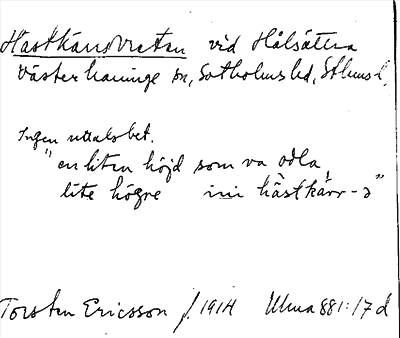 Hästkärrsvreten vid Hålsättra
Västerhaninge sn, Sotholms hd, Sthms l.
Ingen uttalsbet.
"en liten höjd som va odla
lite högre ini hästkärr-ə"
Torsten Ericsson f. 1914 Ulma 881:17 d